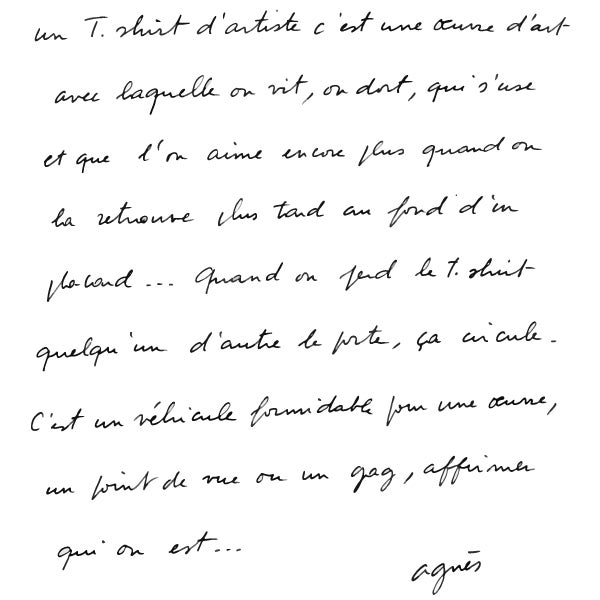 un T. shirt d'artiste c'est une œuvre d'art
avec laquelle on vit, on dort, qui s'use
et que l'on aime encore plus quand on
la retrouve plus tard au fond d'un
placard ... Quand on perd le T. shirt
quelqu'un d'autre le porte, ça circule.
C'est un véhicule formidable pour une œuvre,
un point de vue ou un gag, affirmer
qui on est...
agnès